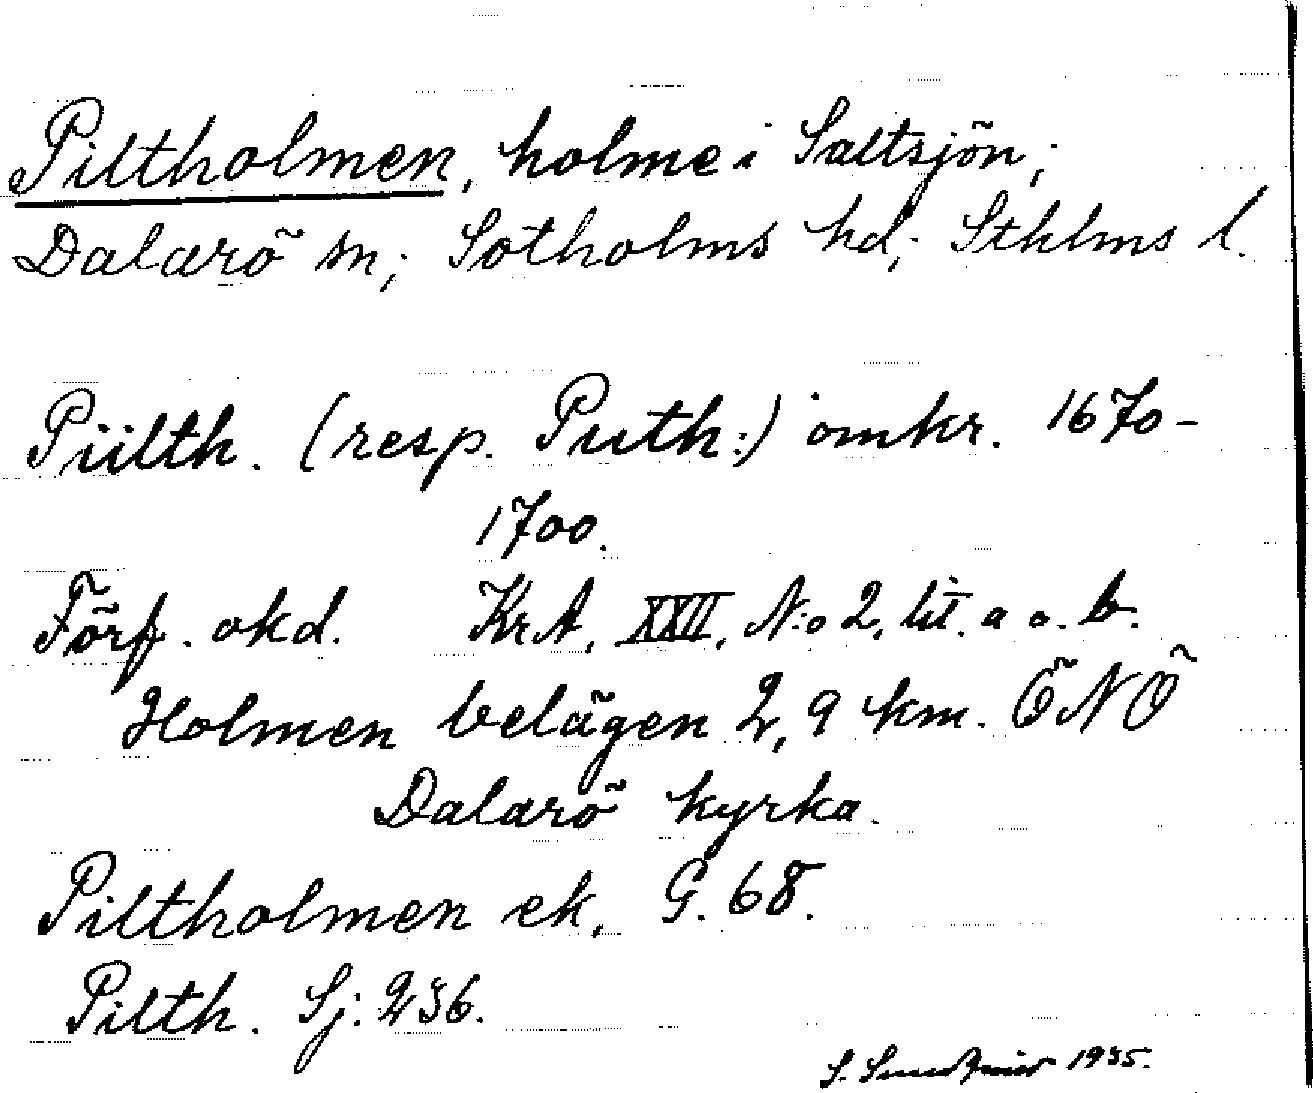 Piltholmen, holme i Saltsjön;
Dalarö sn; Sotholms hd; Sthlms l.
Piilth. (resp. Puth:) omkr. 1670-
1700.
Förf. okd. KrA, XXII, N:o 2, lit. a o. b.
Holmen belägen 2,9 km. ÖNÖ
Dalarö kyrka.
Piltholmen ek. G. 68.
Pilth. Sj: 236.
S. 1935.